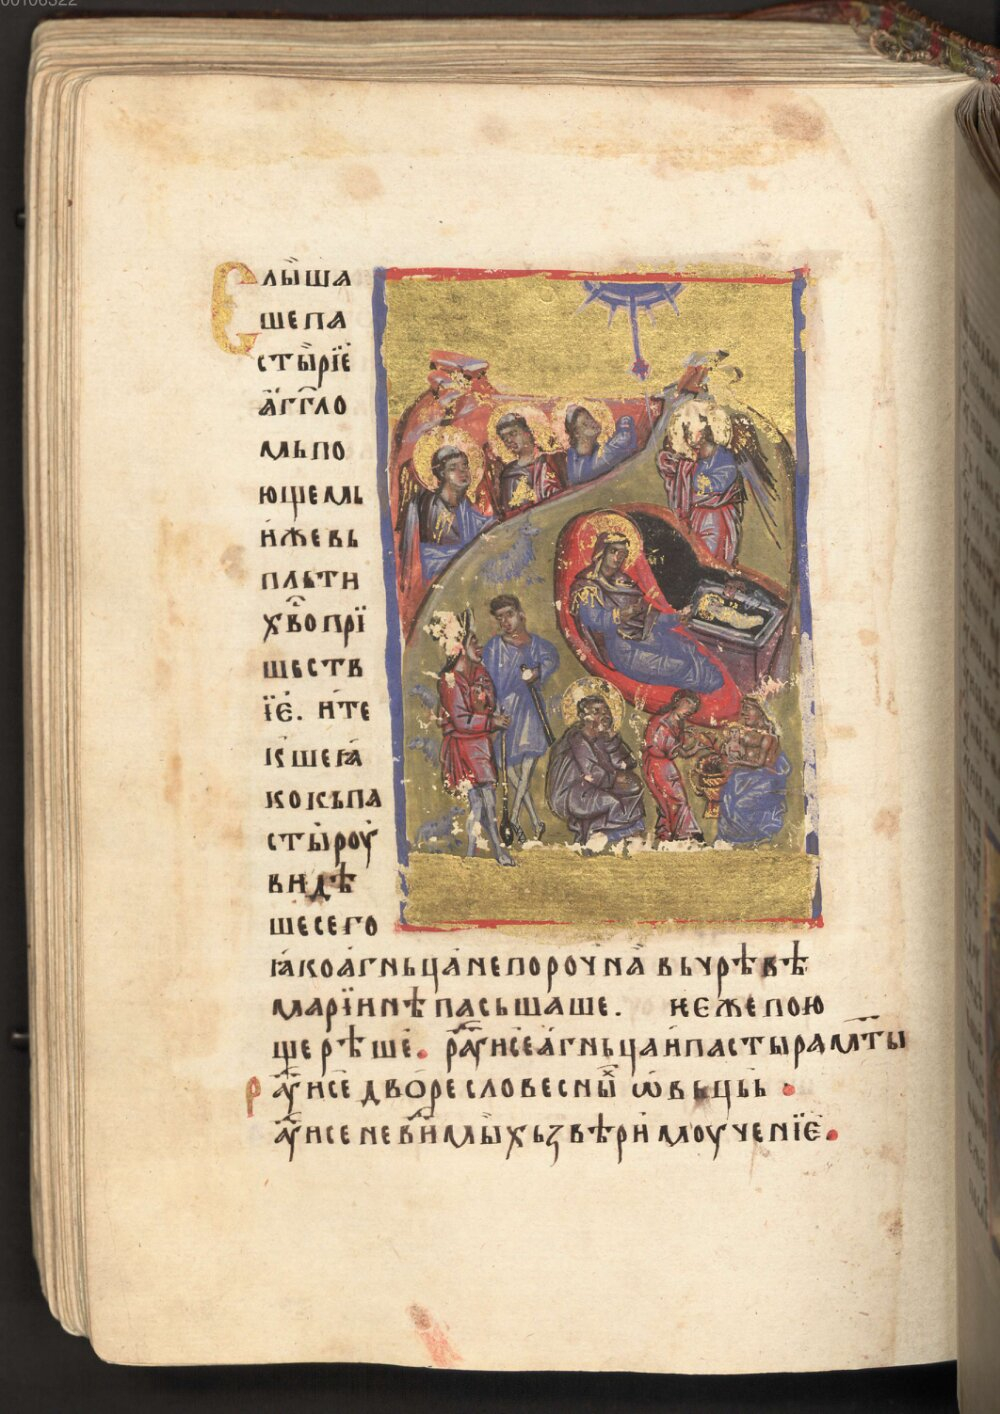 00106322
Слы̏ша
шепа
сты̏рїе
а҆́гг҃ло
мьпо
ющемь
и҆жевь
пльти
хв҃опрї
шьств
їе҆. и҆те
к̾шеꙗ҆
кокьпа
сты̏роу҆
видѣ
шесего
ꙗ҆коа҆гньцане порочна̀ вьчрѣвѣ
марїинѣ пасьшаше. не҆жепою
щерѣше. ра҆́ꙋисеа҆гньцаи҆пастырꙗмт҃ы
Ра҆́ꙋисе дворе словесныи҆х ѡ҆вьць
ра҆́ꙋисеневи҆димы̏хьꙁвѣри҆моученїе.